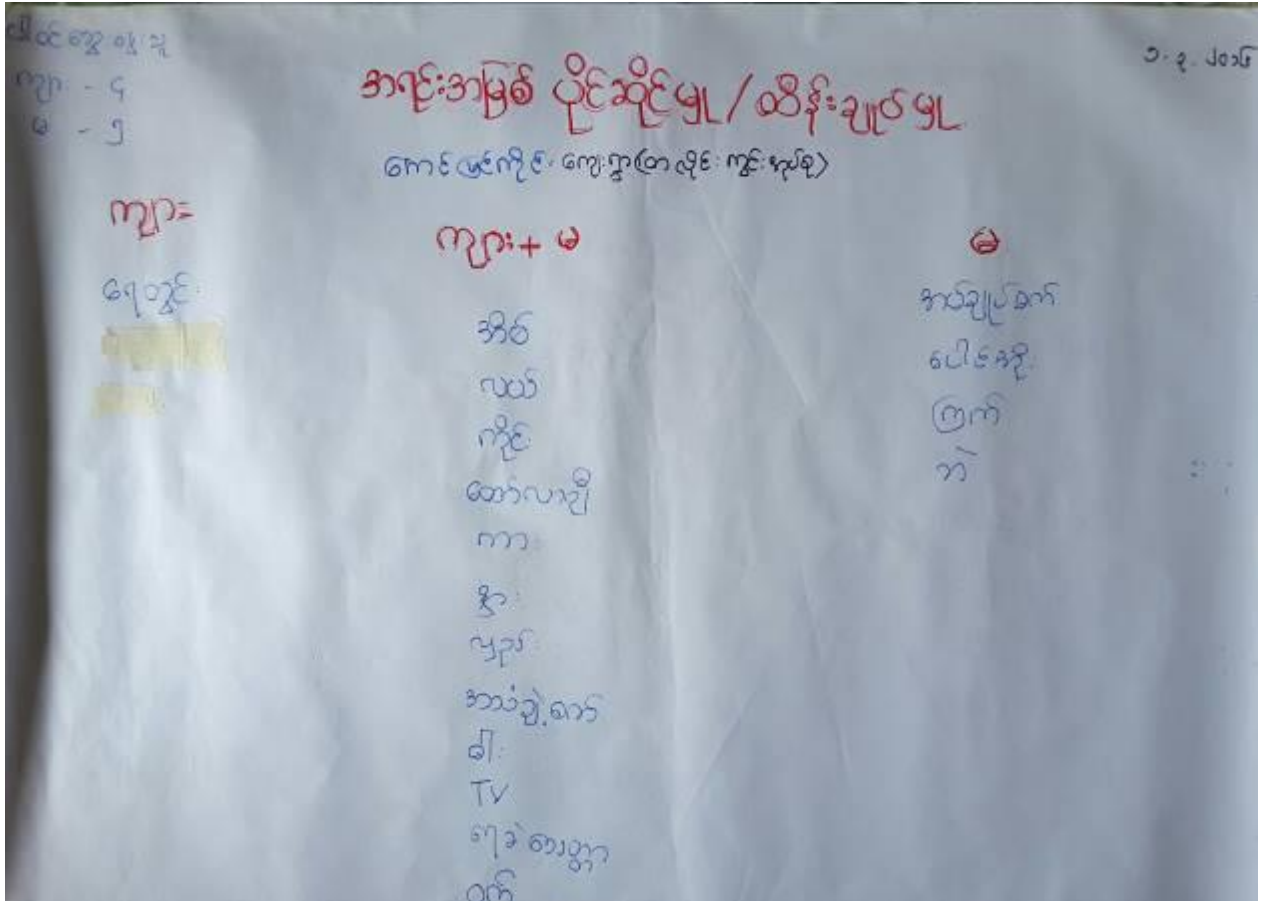 ပါဝင်ဆွေးနွေးသူ
ကျား - ၄
မ - ၅
၁. ၃. ၂၀၁၆
အရင်းအမြစ် ပိုင်ဆိုင်မှု / ထိန်းချုပ်မှု
ကျေးရွာ
ကျား
ရေတွင်း
ကျား + မ
အိမ်
လယ်
ကိုင်း
ထော်လာဂျီ
ကား
နွား
လှည်း
ဓါး
TV
ရေခဲသေတ္တာ
ဝက်
မ
အပ်ချုပ်စက်
ပေါင်းအိုး
ကြက်
ဘဲ